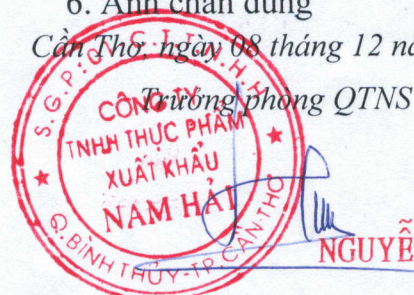 6. Ảnh chân dung
Cần Thơ, ngày 08 tháng 12 nă
Trưởng phòng QTNS
C.T.T.N.H.H
CÔNG TY
TNHH THỰC PHẨM
XUẤT KHẨU
NAM HẢI
Q.BÌNH THỦY-TP.CẦN THƠ
NGUYỄ